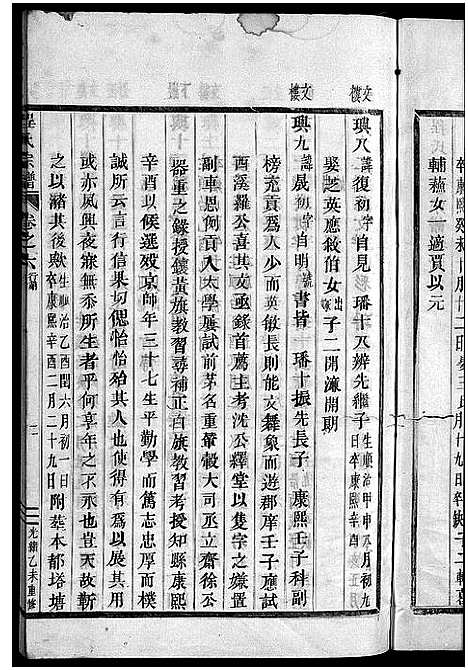 輔蕪女一適賈以元
文樓
興八諱復初字自見璠十八辨先繼子生順治甲申八月初九日卒康熙
娶芝英應敘伯女出嫁子二開濂開期
文樓
興九諱晟初字自明號書皆璠十振先長子康熙壬子科副
榜充貢爲人少而英敏長則能文舞象而遊郡庠壬子應試
酉溪羅公喜其文亟錄首薦主考沈公釋堂以隻字之嫌置
副車恩例貢入太學屢試前茅名重輦轂大司丞立齋徐公
器重之錄授鑲黃旗教習尋補正白旗教習考授知縣康熙
辛酉以候選歿京師年三十七生平勤學而篤志忠厚而樸
誠所云言行信果切偲怡怡殆其人也與方將得有爲以展用
或亦夙興夜寐無忝所生者乎何享年之不永也豈天故靳
之以濬其後歟生順治乙酉閏六月初一日卒康熙辛酉二月二十九日附葬本都塔塘
程氏宗譜
卷之六行第
光緒乙未重修